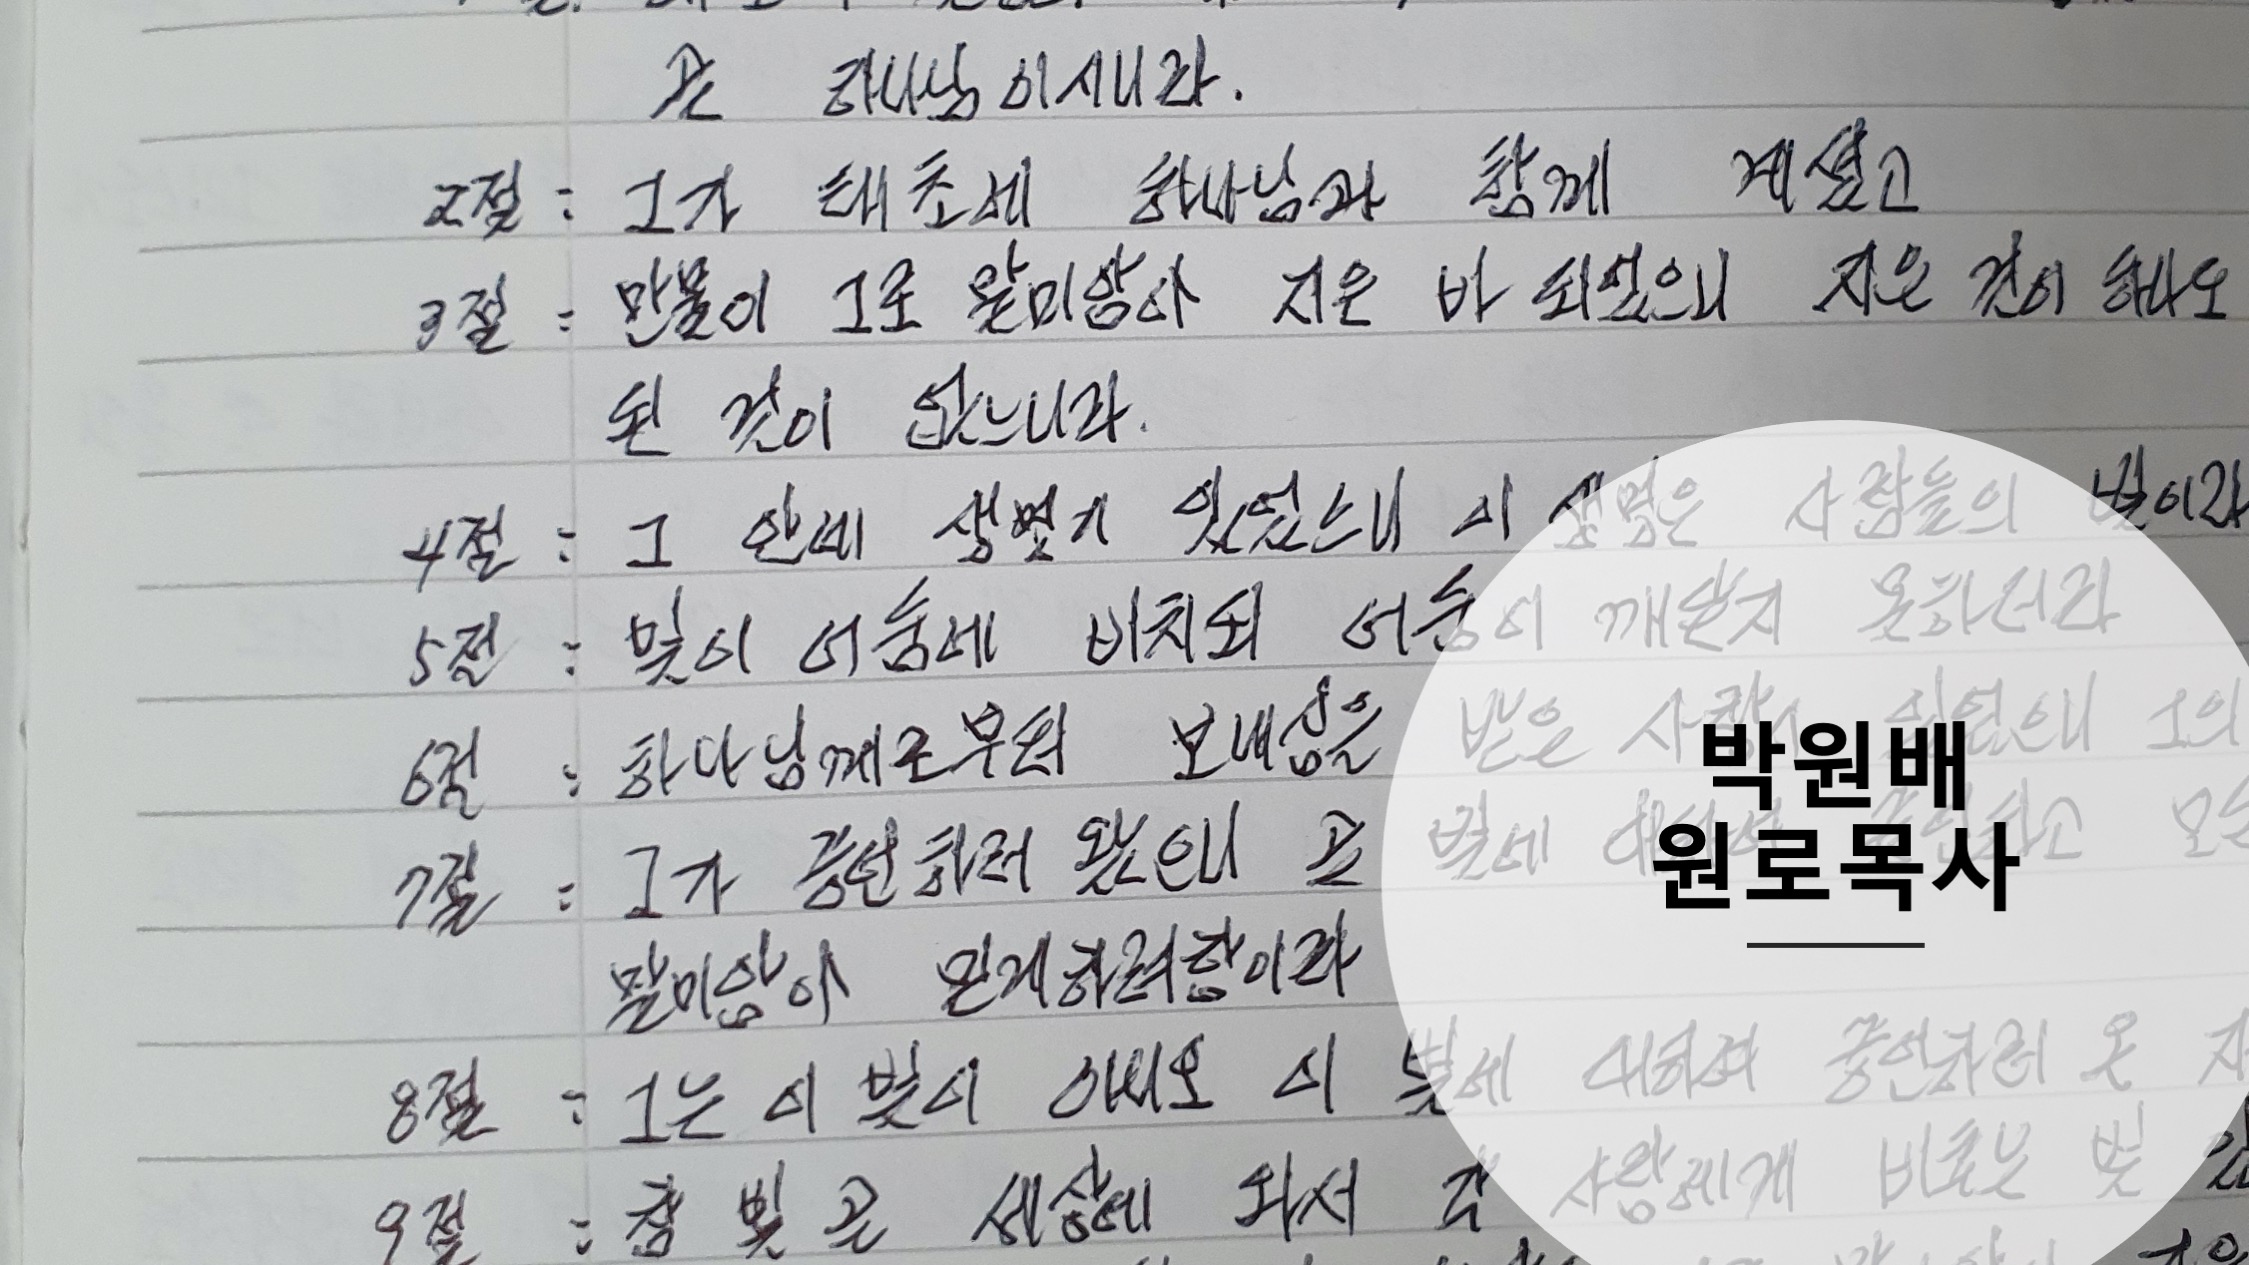 곧 하나님이시니라.
2절 : 그가 태초에 하나님과 함께 계셨고
3절 : 만물이 그로 말미암아 지은 바 되었으니 지은 것이 하나도
된 것이 없느니라.
4절 : 그 안에 생명이 있었으니 이 생명은 사람들의 빛이라
5절 : 빛이 어둠에 비치되 어둠이 깨닫지 못하더라
6절 : 하나님께로부터 보내심을 받은 사람이 있었으니 그의
7절 : 그가 증언하러 왔으니 곧 빛에 대하여 증언하고 모든
말미암아 믿게하려함이라
8절 : 그는 이 빛이 아니오 이 빛에 대하여 증언하러 온 자
9절 : 참 빛 곧 세상에 와서 각 사람에게 비추는 빛
박원배
원로목사